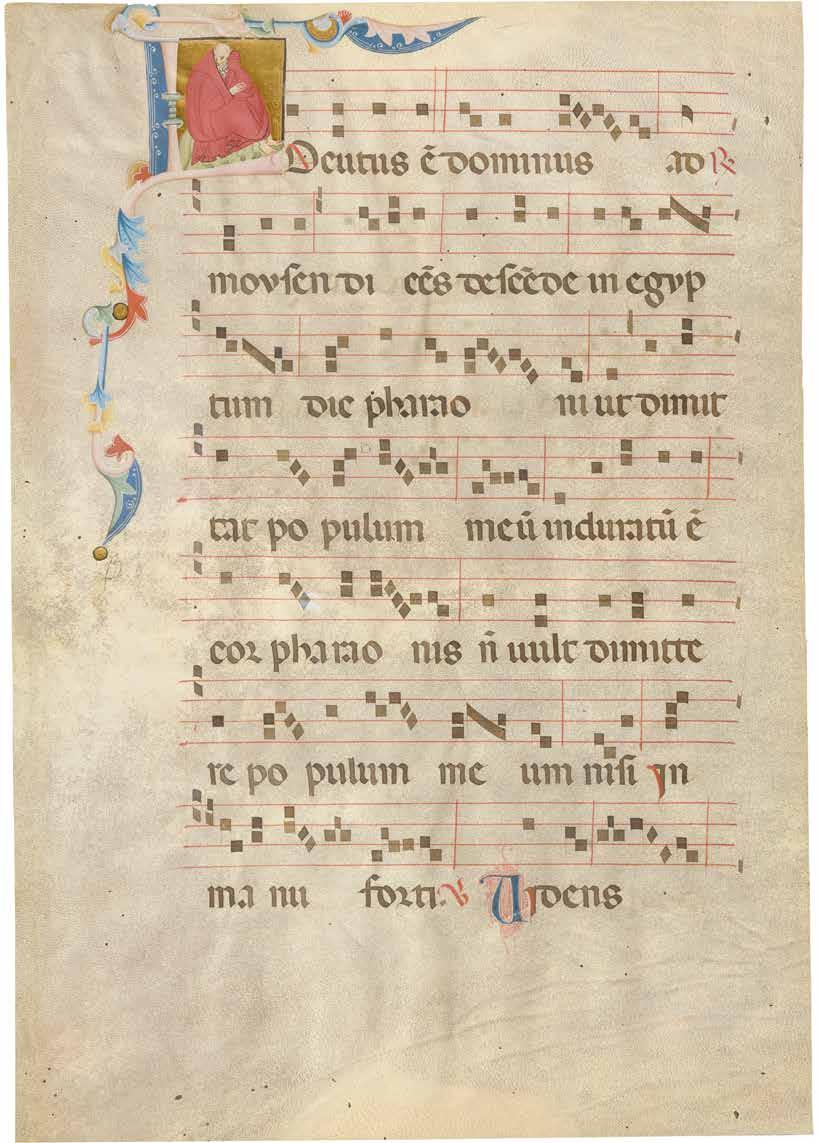 Locutus ē dominus ad ℟
moysen di cēs descēde in egyp
tum dic pharao ni ut dimit
tat po pulum meū induratū ē
cor pharao nis n̄ uult dimitte
re po pulum me um nisi In
ma nu forti. ℣ Uidens